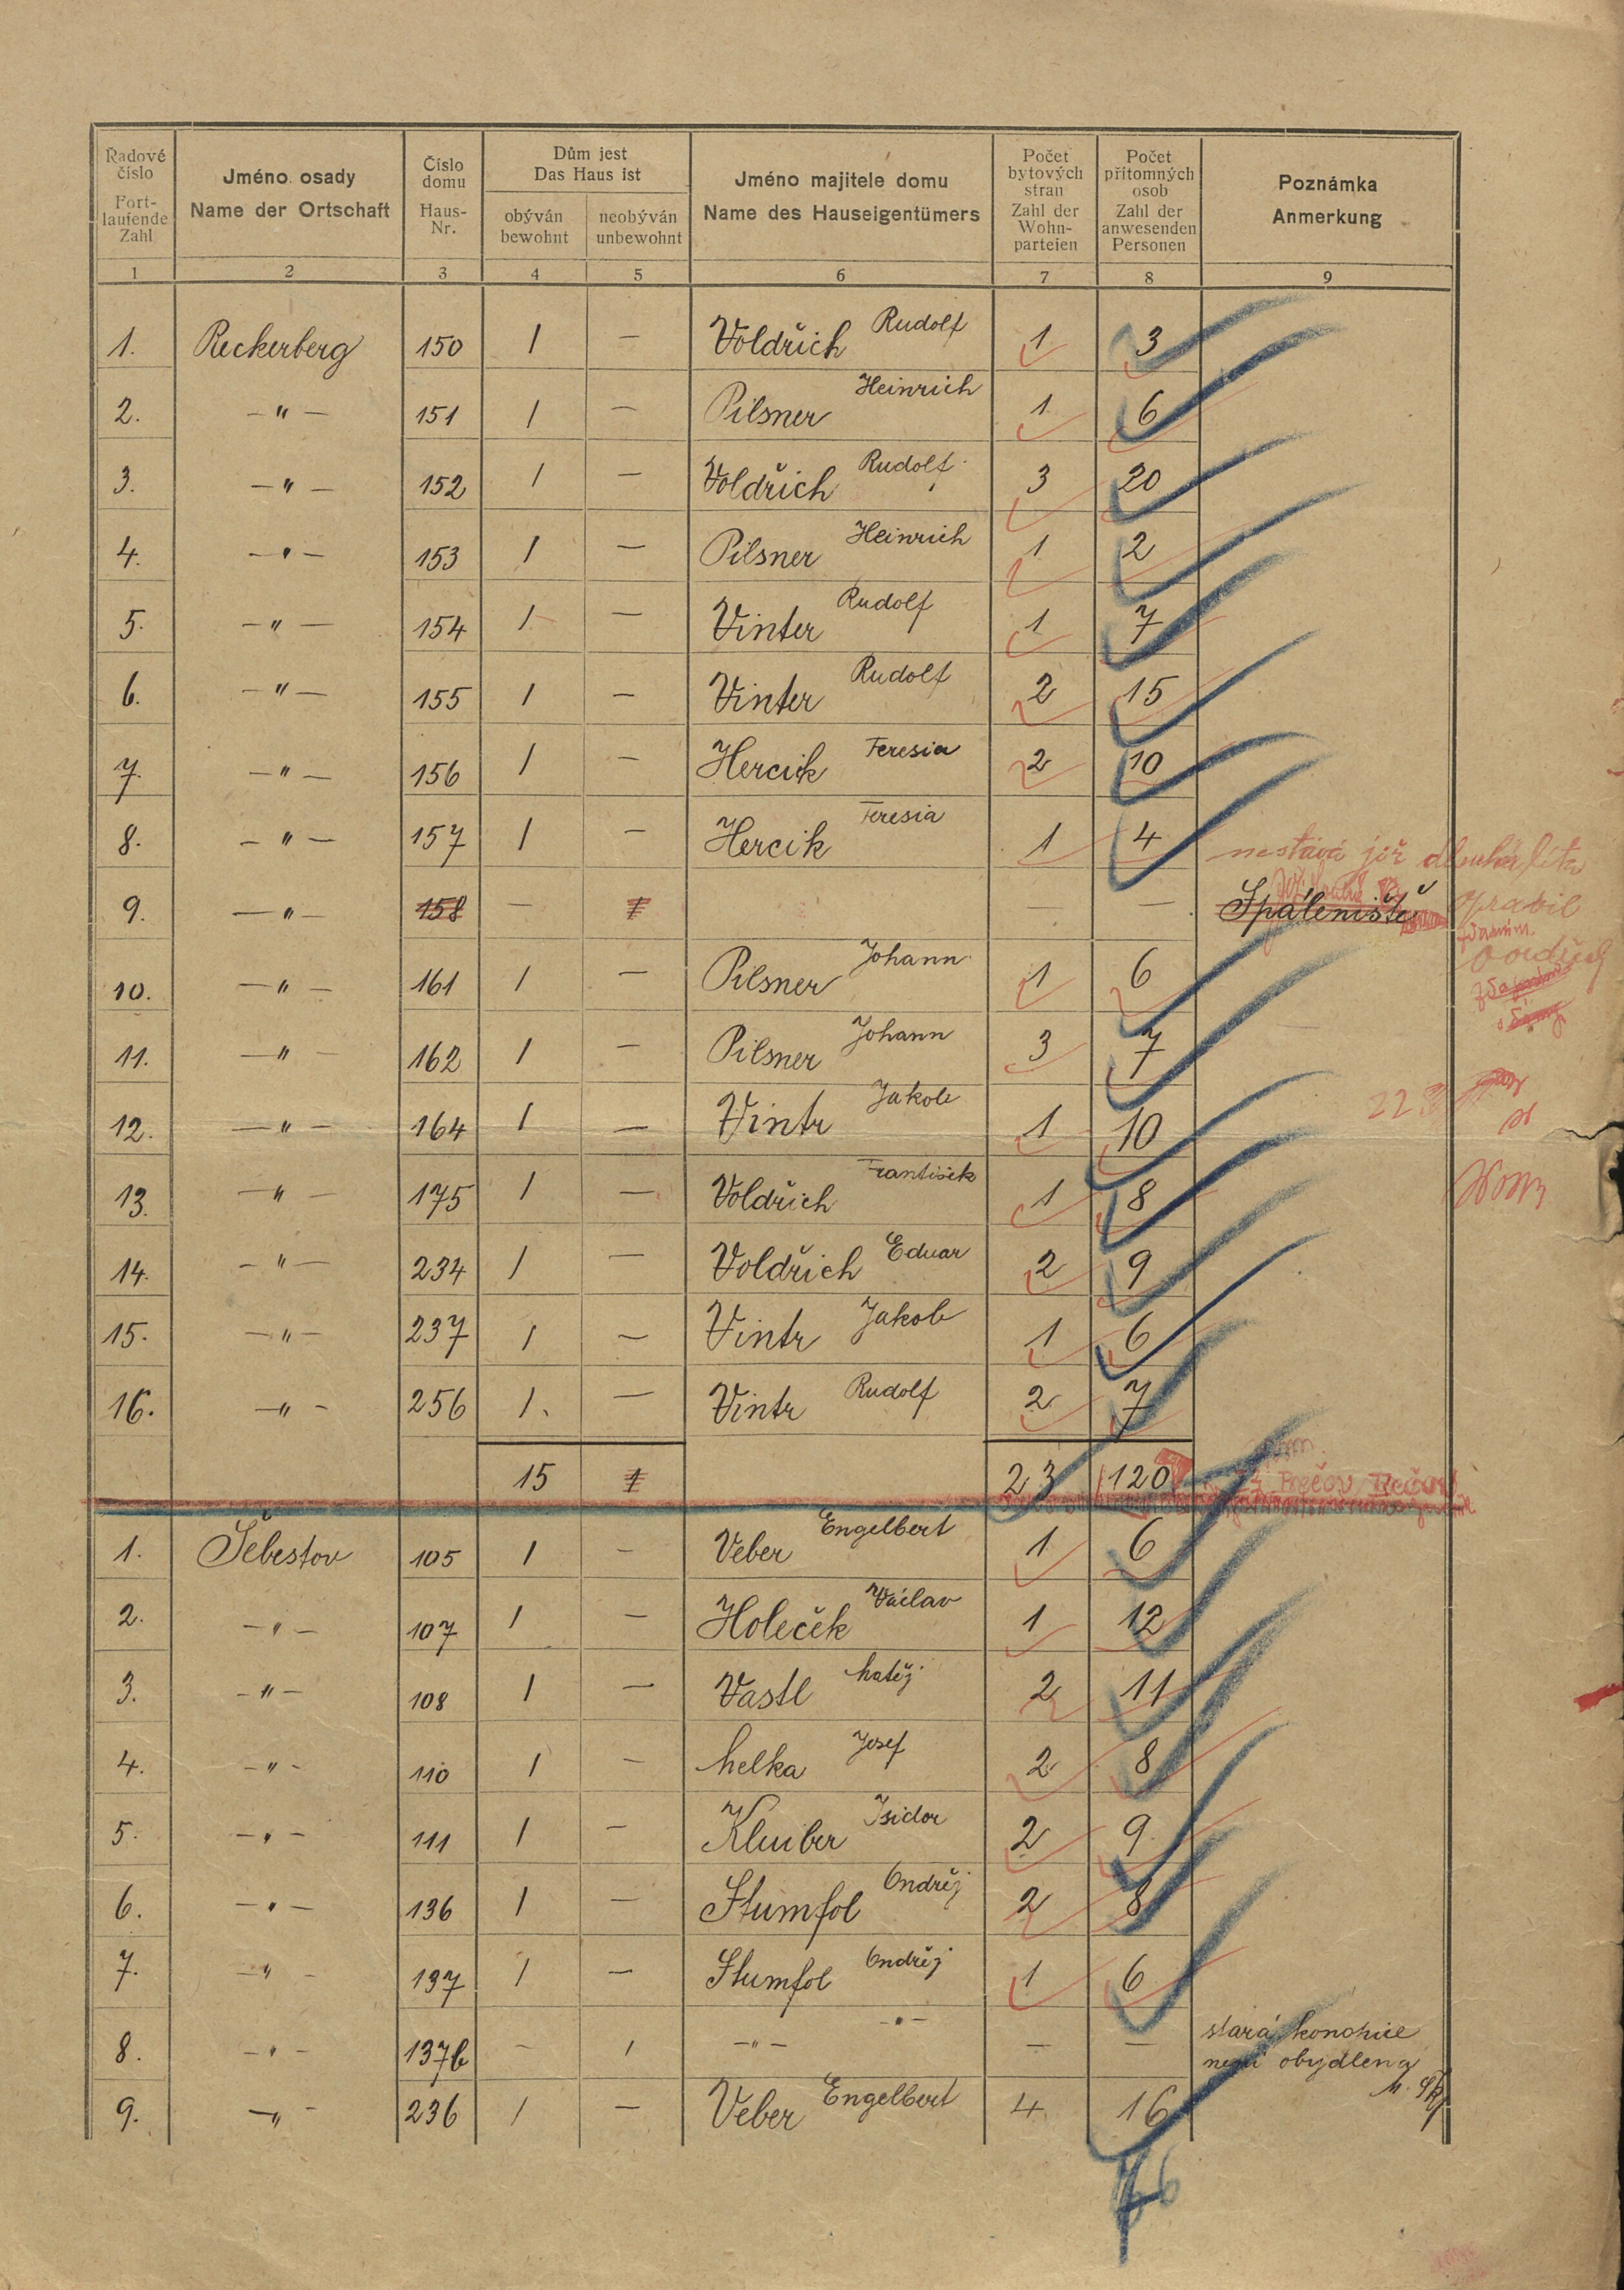 Řadové číslo Fort-laufende Zahl | Jméno osady Name der Ortschaft | Číslo domu Haus-Nr. | Dům jest Das Haus ist | Jméno majitele domu Name des Hauseigentümers | Počet bytových stran Zahl der Wohn-parteien | Počet přítomných osob Zahl der anwesenden Personen | Poznámka Anmerkung
obýván bewohnt | neobýván unbewohnt
1 2 3 4 5 6 7 8 9
1. Reckerberg 150 1 — Voldřich Rudolf 1 3
2. —"— 151 1 — Pilsner Heinrich 1 6
3. —"— 152 1 — Voldřich Rudolf 3 20
4. —"— 153 1 — Pilsner Heinrich 1 2
5. —"— 154 1 — Vinter Rudolf 1 7
6. —"— 155 1 — Vinter Rudolf 2 15
7. —"— 156 1 — Hercik Teresia 2 10
8. —"— 157 1 — Hercik Teresia 1 4
nestává již
9. —"— 158 — 1 — — Spáleniště
10. —"— 161 1 — Pilsner Johann 1 6
11. —"— 162 1 — Pilsner Johann 3 7
12. —"— 164 1 — Vintr Jakob 1 10
13. —"— 175 1 — Voldřich František 1 8
14. —"— 234 1 — Voldřich Eduar 2 9
15. —"— 237 1 — Vintr Jakob 1 6
16. —"— 256 1. — Vintr Rudolf 2 7
15 1 23 120
1. Šebestov 105 1 — Veber Engelbert 1 6
2. —"— 107 1 — Holeček Václav 1 12
3. —"— 108 1 — Vastl Matěj 2 11
4. —"— 110 1 — Melka Josef 2 8
5. —"— 111 1 — Kluiber Isidor 2 9
6. —"— 136 1 — Stumfol Ondřej 2 8
7. —"— 137 1 — Stumfol Ondřej 1 6
8. —"— 137b — 1 —"— —"— — — stará konohice
není obydlena
9. —"— 236 1 — Veber Engelbert 4 16